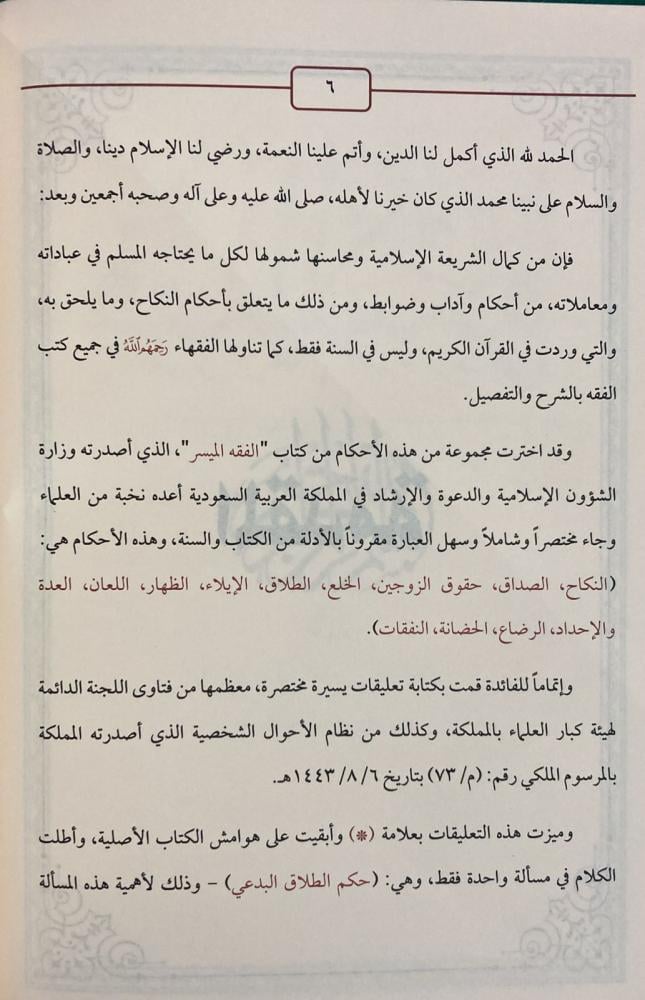 ٦
الحمد لله الذي أكمل لنا الدين، وأتم علينا النعمة، ورضي لنا الإسلام دينا، والصلاة
والسلام على نبينا محمد الذي كان خيرنا لأهله، صلى الله عليه وعلى آله وصحبه أجمعين وبعد:
فإن من كمال الشريعة الإسلامية ومحاسنها شمولها لكل ما يحتاجه المسلم في عباداته
ومعاملاته، من أحكام وآداب وضوابط، ومن ذلك ما يتعلق بأحكام النكاح، وما يلحق به،
والتي وردت في القرآن الكريم، وليس في السنة فقط، كما تناولها الفقهاء رَحِمَهُمُ اللَّهُ في جميع كتب
الفقه بالشرح والتفصيل.
وقد اخترت مجموعة من هذه الأحكام من كتاب "الفقه الميسر"، الذي أصدرته وزارة
الشؤون الإسلامية والدعوة والإرشاد في المملكة العربية السعودية أعده نخبة من العلماء
وجاء مختصراً وشاملاً وسهل العبارة مقروناً بالأدلة من الكتاب والسنة، وهذه الأحكام هي:
(النكاح، الصداق، حقوق الزوجين، الخلع، الطلاق، الإيلاء، الظهار، اللعان، العدة
والإحداد، الرضاع، الحضانة، النفقات).
وإتماماً للفائدة قمت بكتابة تعليقات يسيرة مختصرة، معظمها من فتاوى اللجنة الدائمة
لهيئة كبار العلماء بالمملكة، وكذلك من نظام الأحوال الشخصية الذي أصدرته المملكة
بالمرسوم الملكي رقم: (م/ ٧٣) بتاريخ ٦/ ٨/ ١٤٤٣هـ.
وميزت هذه التعليقات بعلامة (❊) وأبقيت على هوامش الكتاب الأصلية، وأطلت
الكلام في مسألة واحدة فقط، وهي: (حكم الطلاق البدعي) – وذلك لأهمية هذه المسألة